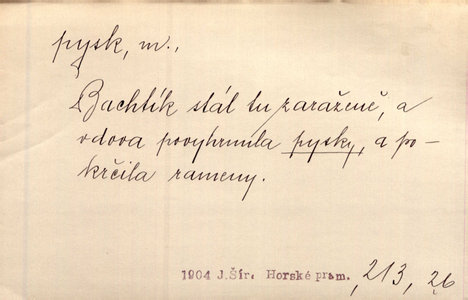 pysk, m.,
Bachtík stál tu zaraženě, a
vdova povyhrnula pysky, a po-
krčila rameny.
1904 J.Šír. Horské pram. 213, 26